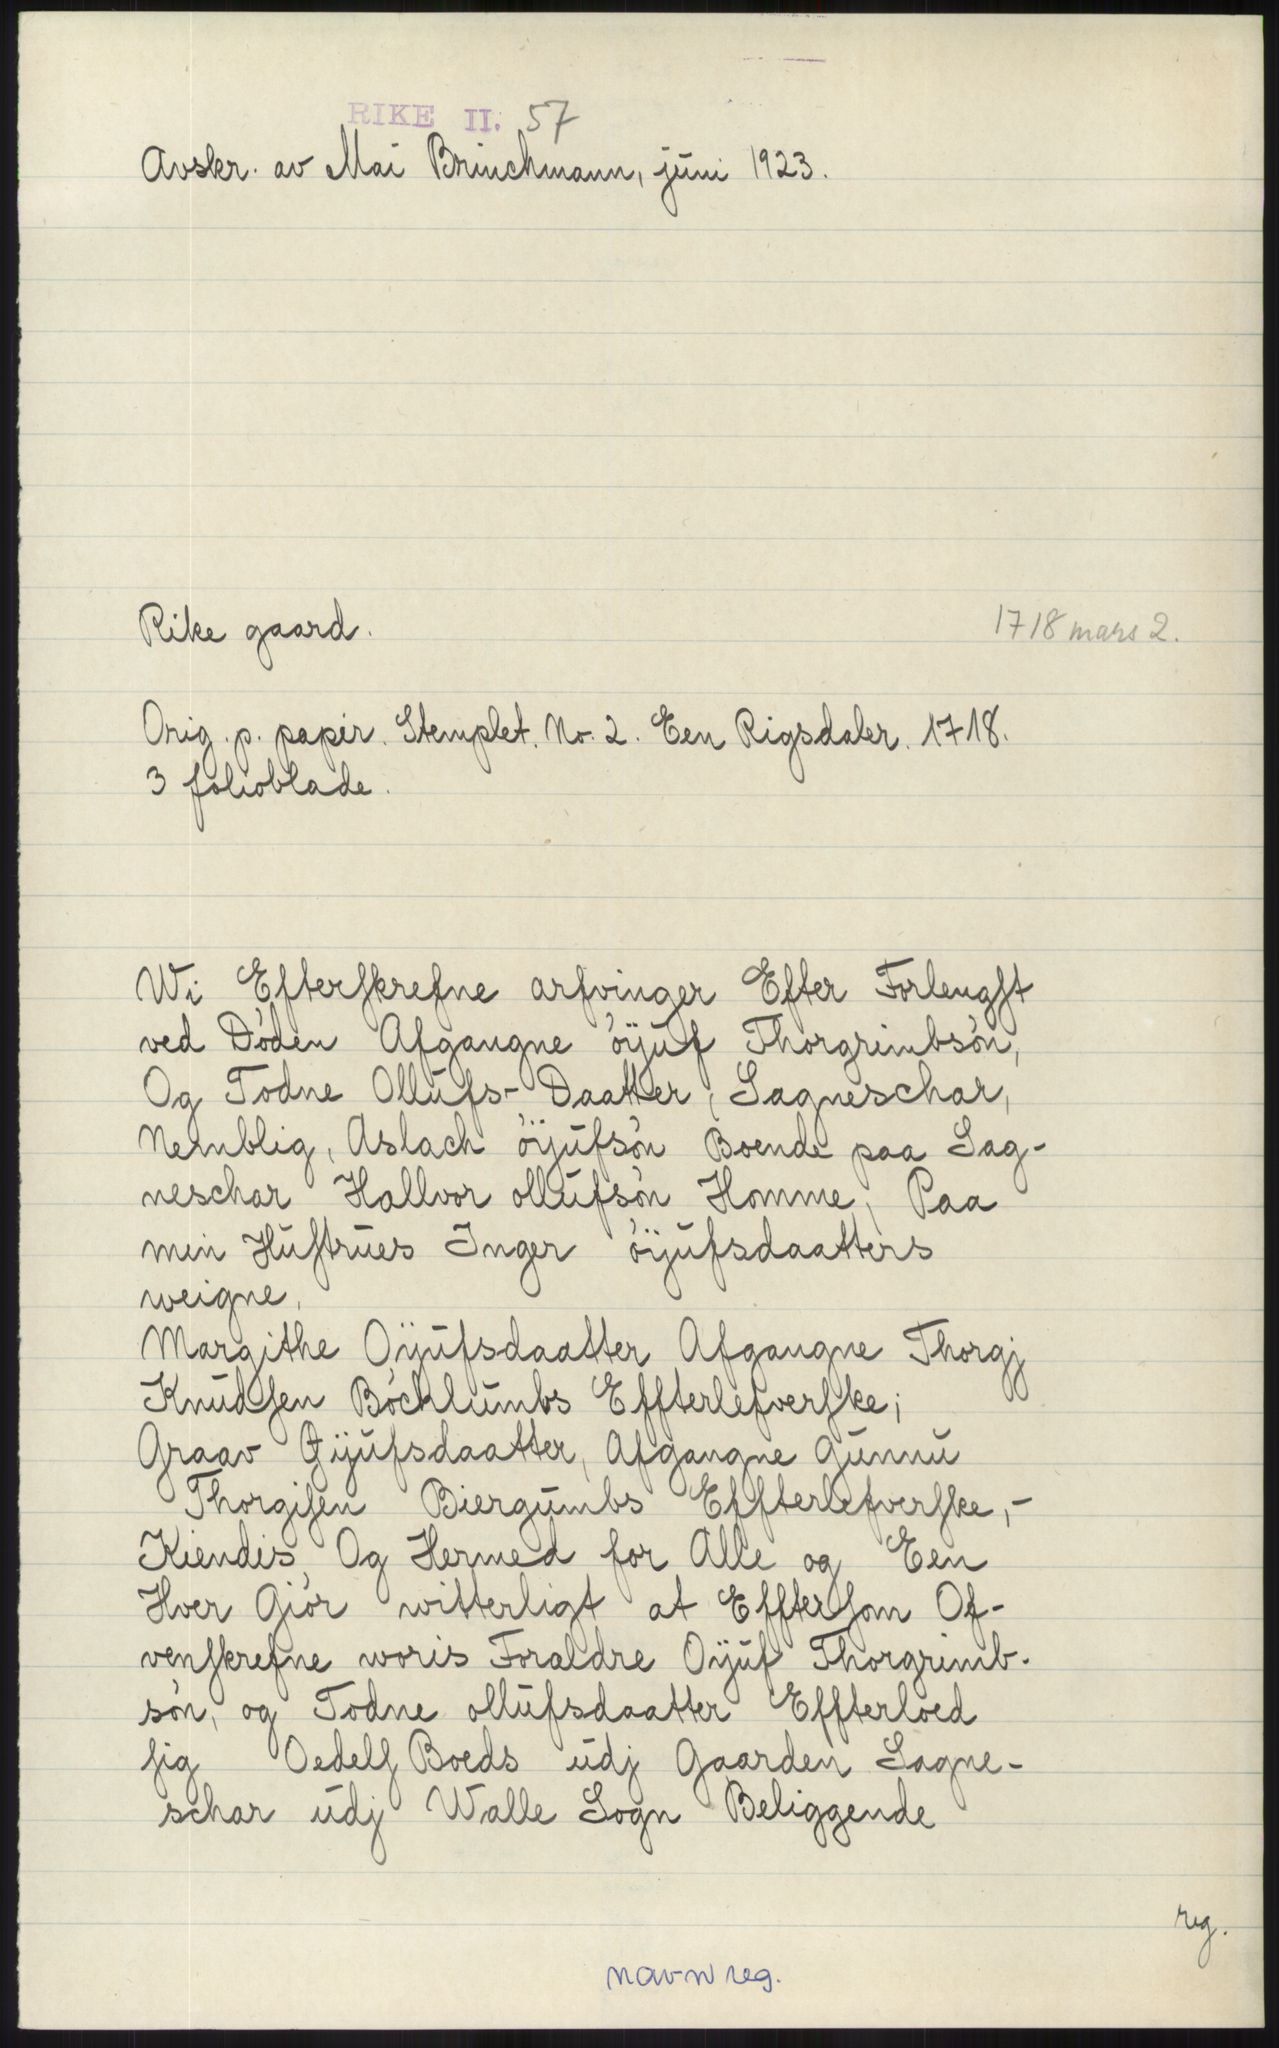 RIKE II. 57
Avskr. av Mai Brinchmann, juni 1923.
Rike gaard.
1718 mars 2.
Orig. p. papir. Stemplet. No. 2. Een Rigsdaler. 1718.
3 folioblade.
Wi Efterskrefne arfvinger Efter Forlengst
ved Døden Afgangne öÿuf Thorgrimbsøn,
Og Todne Ollufs-Daatter, Sagneschar,
Nemblig, Aslach öÿufsøn Boende paa Sag-
neschar Hallvor ollufsøn Homme, Paa
min Hustrues Inger öÿufsdaatters
weigne,
Margithe Oÿufsdaatter Afgangne Thorgj
Knudsen Bøcklumbs Effterlefverske;
Graav Øÿufsdaatter, Afgangne Gunnu
Thorgisen Biergumbs Effterlefverske,-
Kiendis, Og Hermed for Alle og Een
Hver Giør witterligt at Efftersom Of-
venskrefne woris Foraldre Oÿuf Thorgrimb-
søn, og Todne ollufsdaatter Effterloed
sig Oedels Boeds udj Gaarden Sagne-
schar udj Walle Sogn Beliggende
reg.
navn reg.